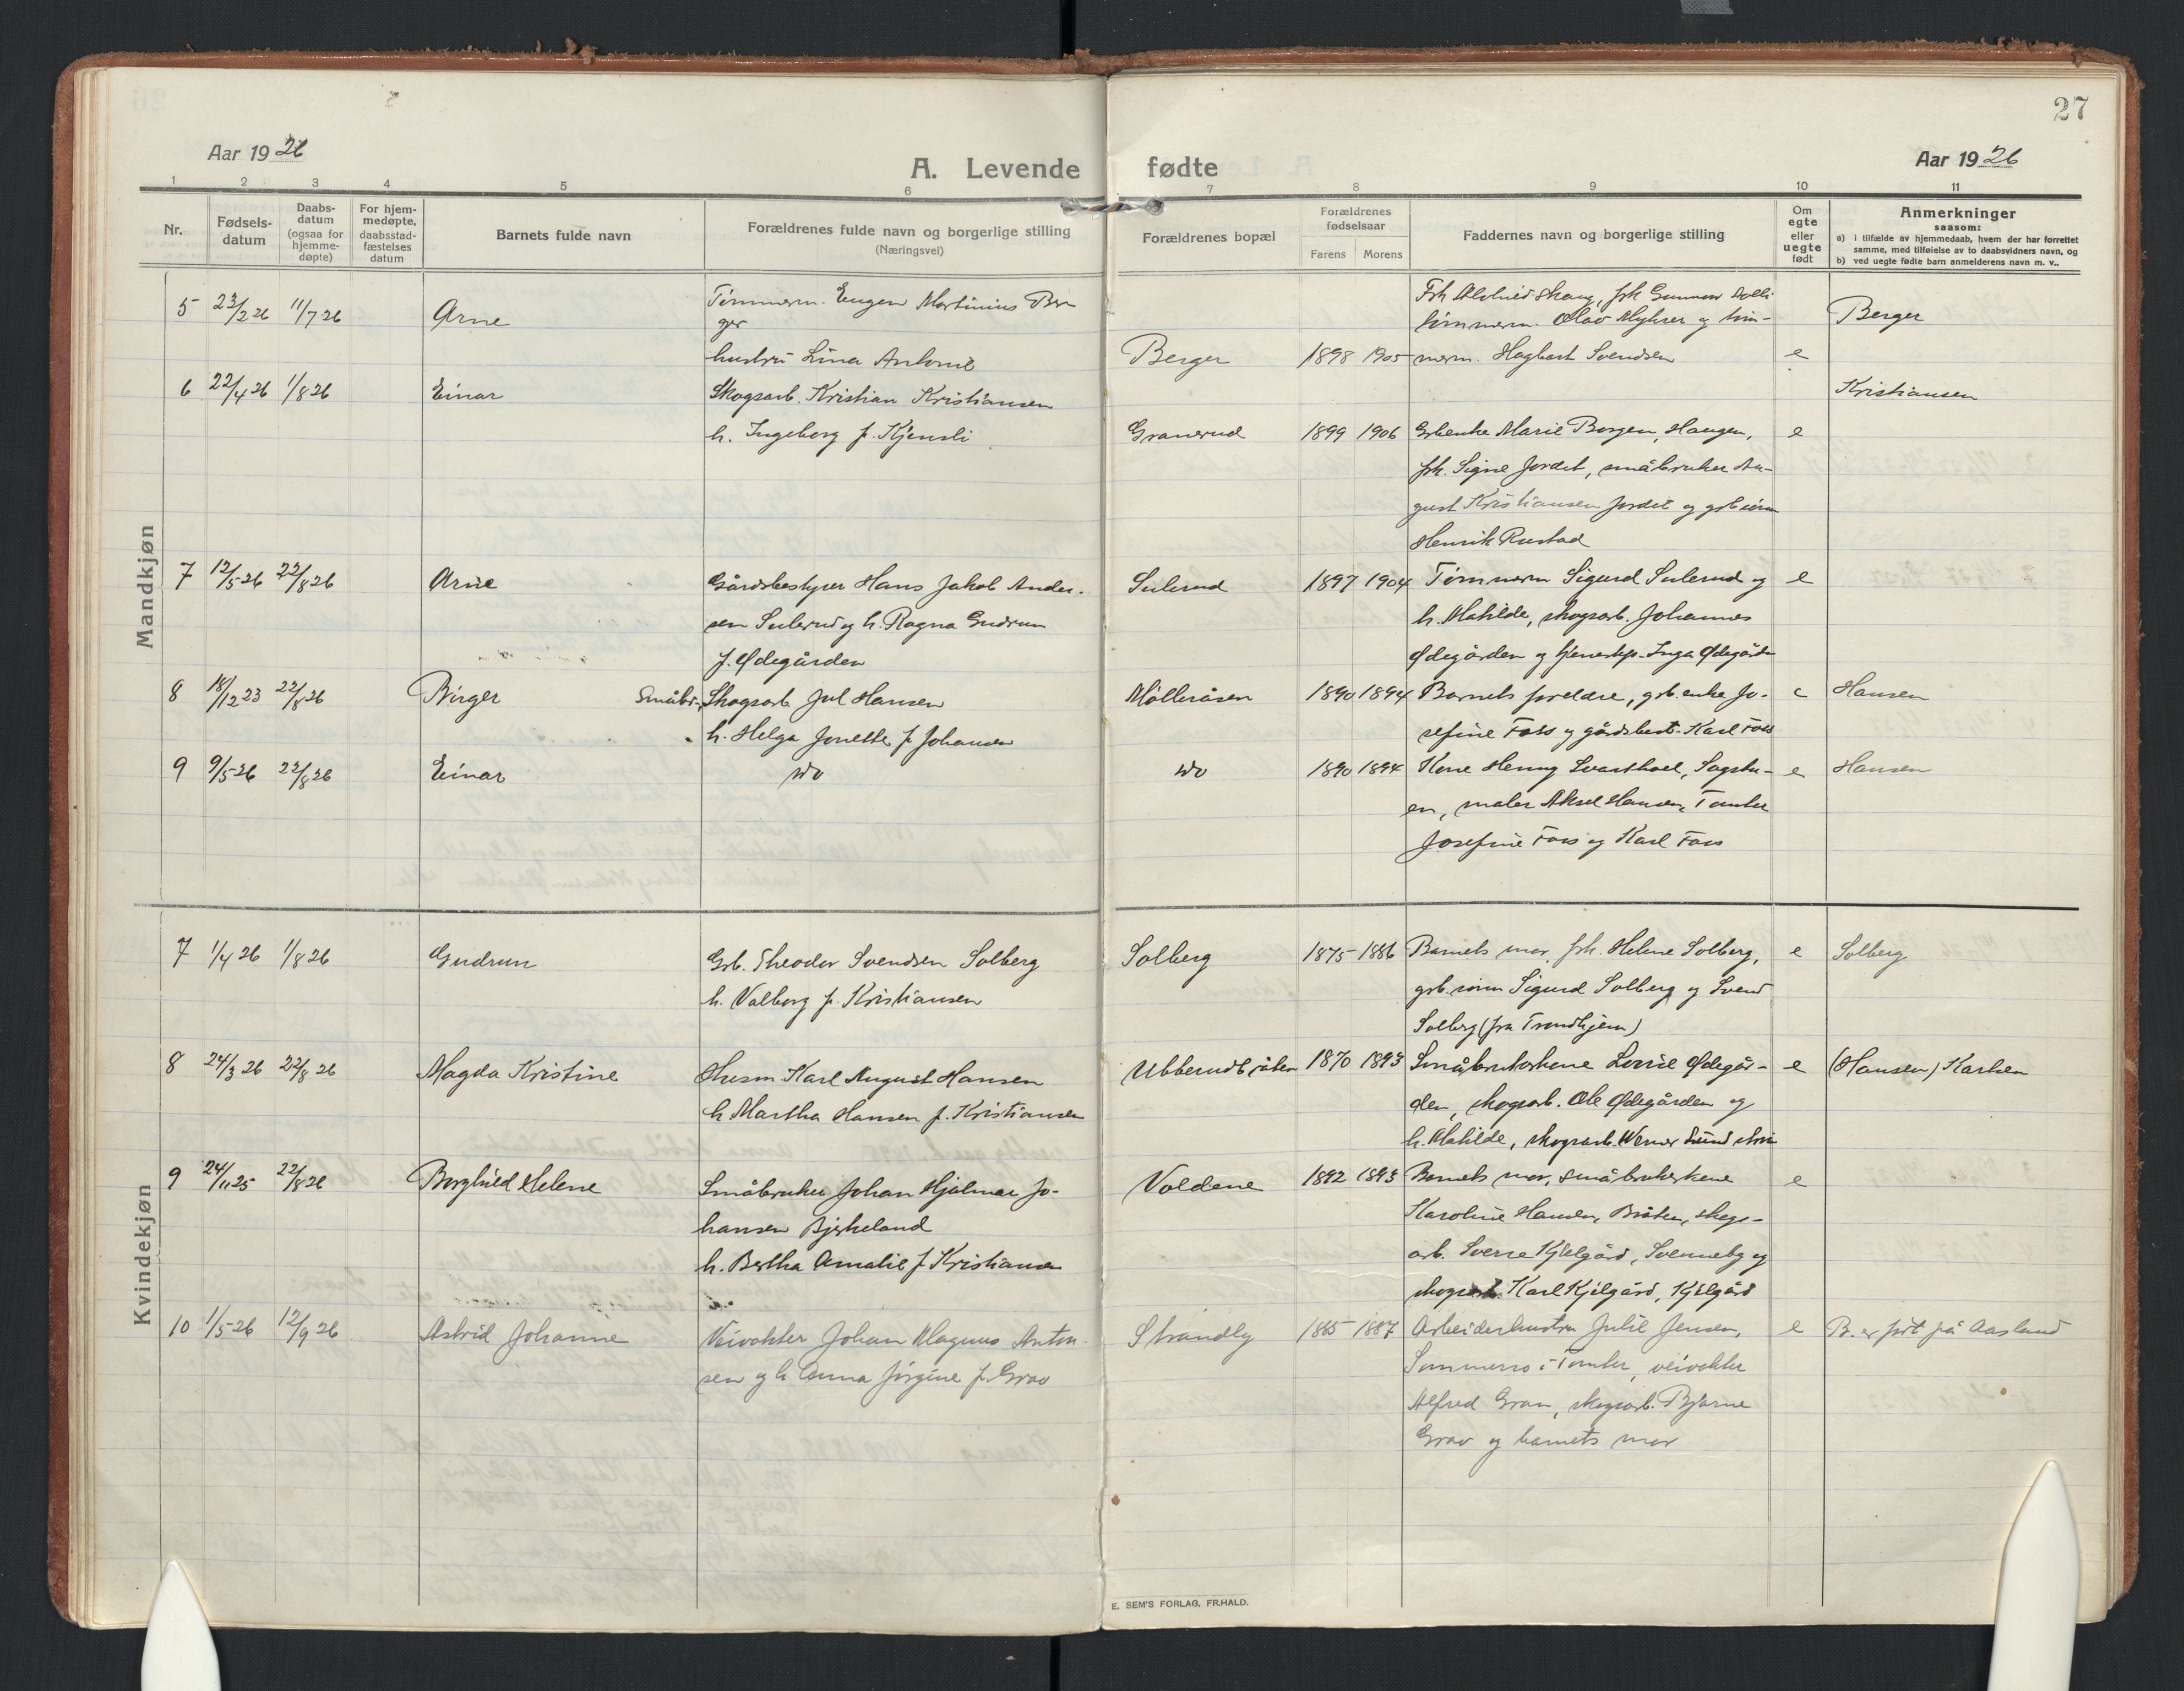 27
Aar 1926
A. Levende fødte
Aar 1926
1 2 3 4 5 6 7 8 9 10 11
Nr.
Fødsels-
datum
Daabs-
datum
(ogsaa for
hjemme-
døpte)
For hjem-
medøpte,
daabsstad-
fæstelses
datum
Barnets fulde navn
Forældrenes fulde navn og borgerlige stilling
(Næringsvei)
Forældrenes bopæl
Forældrenes
fødselsaar
Farens Morens
Faddernes navn og borgerlige stilling
Om
egte
eller
uegte
født
Anmerkninger
saasom:
a) i tilfælde av hjemmedaab, hvem der har forrettet
samme, med tilføielse av to daabsvidners navn, og
b) ved uegte fødte barn anmelderens navn m. v..
Mandkjøn
5 23/2 26 11/7 26 Arne
Tømmerm. Eugen Martinius Ber
ger
hustru Lina Antonie
Berger 1898 1905
Frk Skaug, frk Gunnor
tømmerm. Olav Myhrer og
merm. Hagbart Svendsen
e
Berger
6 22/4 26 1/8 26 Einar
Skogsarb. Kristian Kristiansen
h. Ingeborg f. Kjensli
Granerud 1899 1906
Grbenke Marie Borgen, Haugen,
frk. Signe Jordet, småbruker Au-
gust Kristiansen Jordet og
Henrik Rustad
e
Kristiansen
7 12/5 26 22/8 26 Arne
Gårdsbestyrer Hans Jakob Ander-
sen Sulerud og h. Ragna Gudrun
f. Ødegården
Sulerud 1897 1904
Tømmerm Sigurd Sulerud og
h. Mathilde, skogsarb. Johannes
Ødegården og Inga Ødegården
e
8 18/12 23 22/8 26 Birger
Småbr. Skogsarb Jul Hansen
h. Helga Jonette f. Johansen
Mølleråsen 1890 1894
Barnets foreldre, grb. enke Jo-
sefine Foss og gårdsbest. Karl Foss
e
Hansen
9 9/5 26 22/8 26 Einar
do
do 1890 1894
Kone Henny Svarthoel, Sagstu-
en, maler Aksel Hansen, Tomter
Josefine Foss og Karl Foss
e
Hansen
Kvindekjøn
7 1/4 26 1/8 26 Gudrun
Grb. Theodor Svendsen Solberg
h. Valborg f. Kristiansen
Solberg 1875 1886
Barnets mor, frk. Helene Solberg,
grb. sønn Sigurd Solberg og Svend
Solberg (fra Trondhjem)
e
Solberg
8 24/3 26 22/8 26 Magda Kristine
Husm Karl August Hansen
h. Martha Hansen f. Kristiansen
Ubberudbråten 1870 1893
Småbrukerkone Ødegår-
den, skogsarb. Ole Ødegården og
h. Mathilde, skogsarb. Werner
e
(Hansen) Karlsen
9 24/11 25 22/8 26 Borghild Helene
Småbruker Johan Hjalmar Jo-
hansen Bjerkeland
h. Bertha Amalie f. Kristiansen
Voldene 1892 1893
Barnets mor, småbrukerkone
Karoline Hansen, Bråten, skogs-
arb. Sverre Kjelgård, Svenneby og
skogsarb. Karl Kjelgård, Kjelgård
e
10 1/5 26 12/9 26 Astrid Johanne
Veivokter Johan Magnus Anton-
sen og h. Anna Jørgine f. Grav
Strandly 1885 1887
Arbeiderhustru Julie Jensen,
Sommerro i Tomter, veivokter
Alfred Grav, skogsarb. Bjarne
Grav og barnets mor
e
B. er født på Aasland
E. SEM'S FORLAG, FR.HALD.